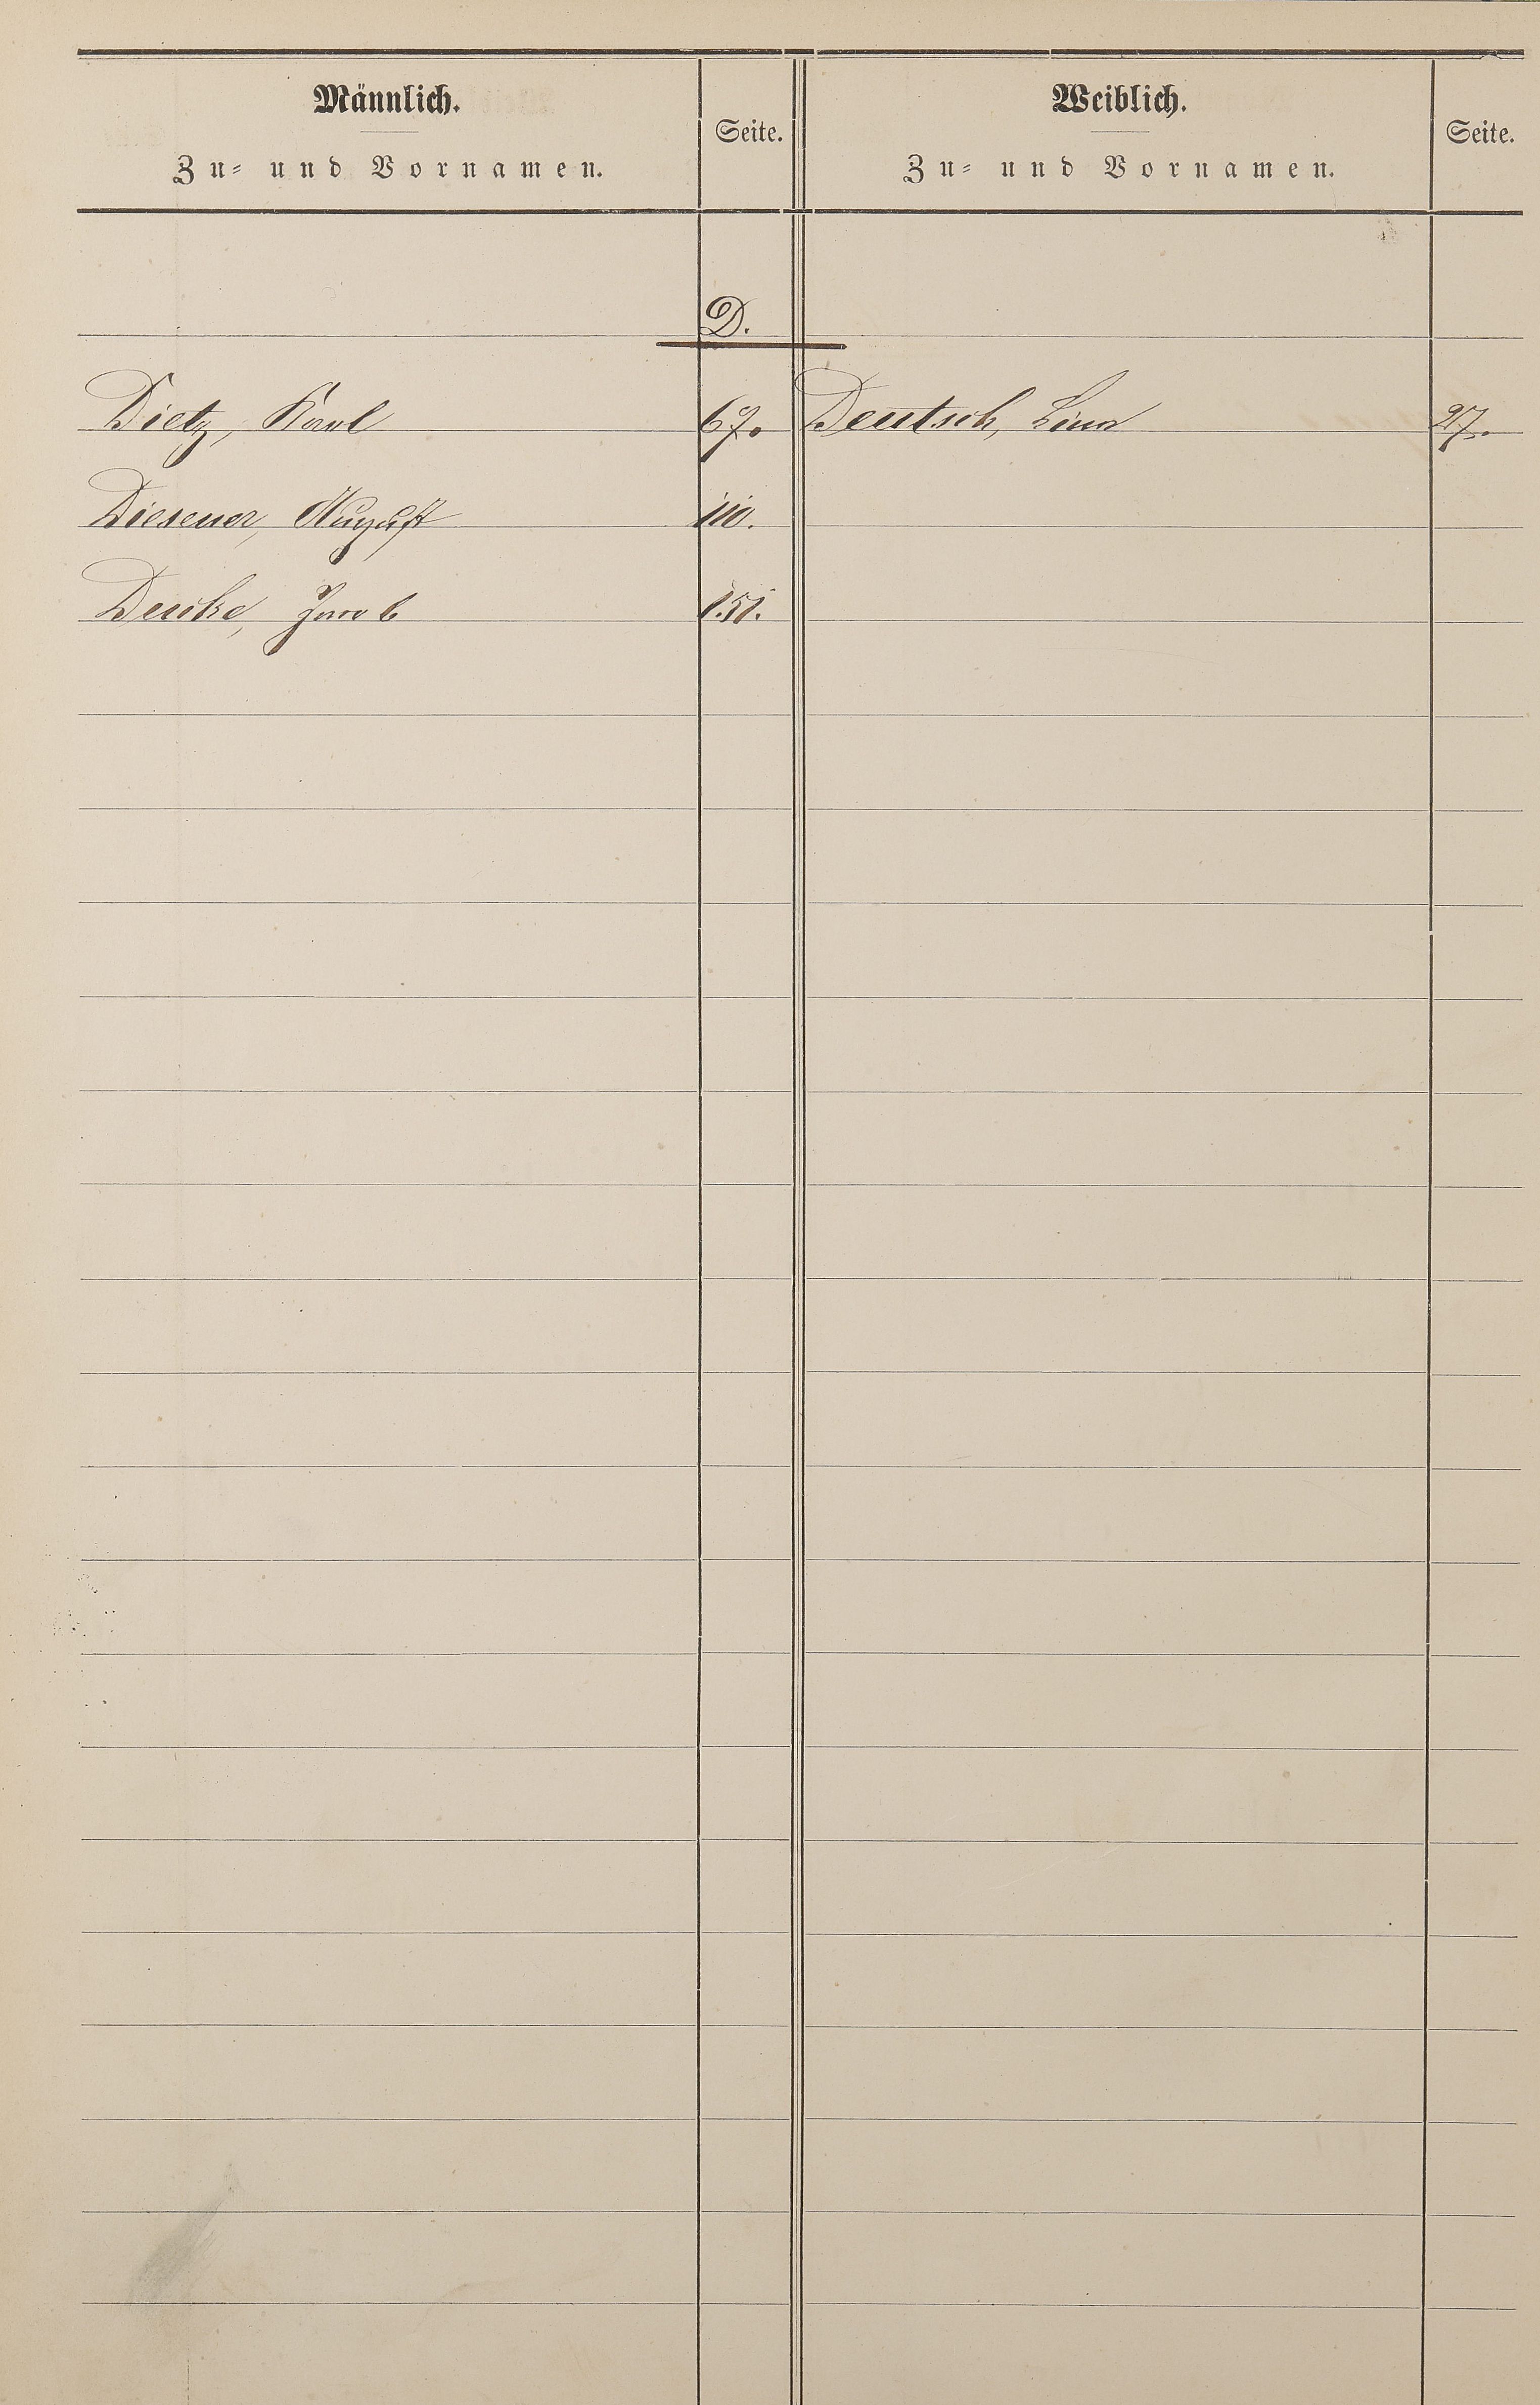 Männlich. Weiblich.
Seite. Seite.
Zu- und Vornamen. Zu- und Vornamen.
D.
Dietz, Karl 67. Deutsch, Lina 27.
Diesener, August 110.
Jacob 151.